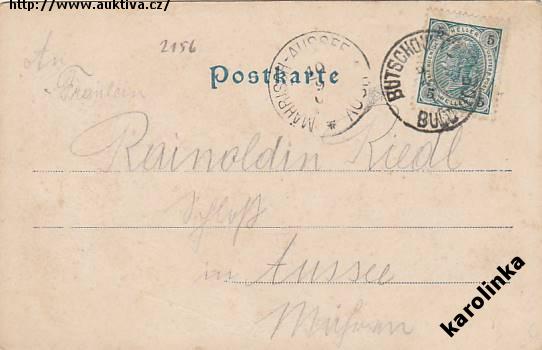 http://www.auktiva.cz/
2156
An
Fräulein
Postkarte
MÄHRISCH-AUSSEE
BUTSCHOW
5 HELLER 5
5 5
Rainoldin Riedl
Schloß
in Aussee
Mähren
karolinka